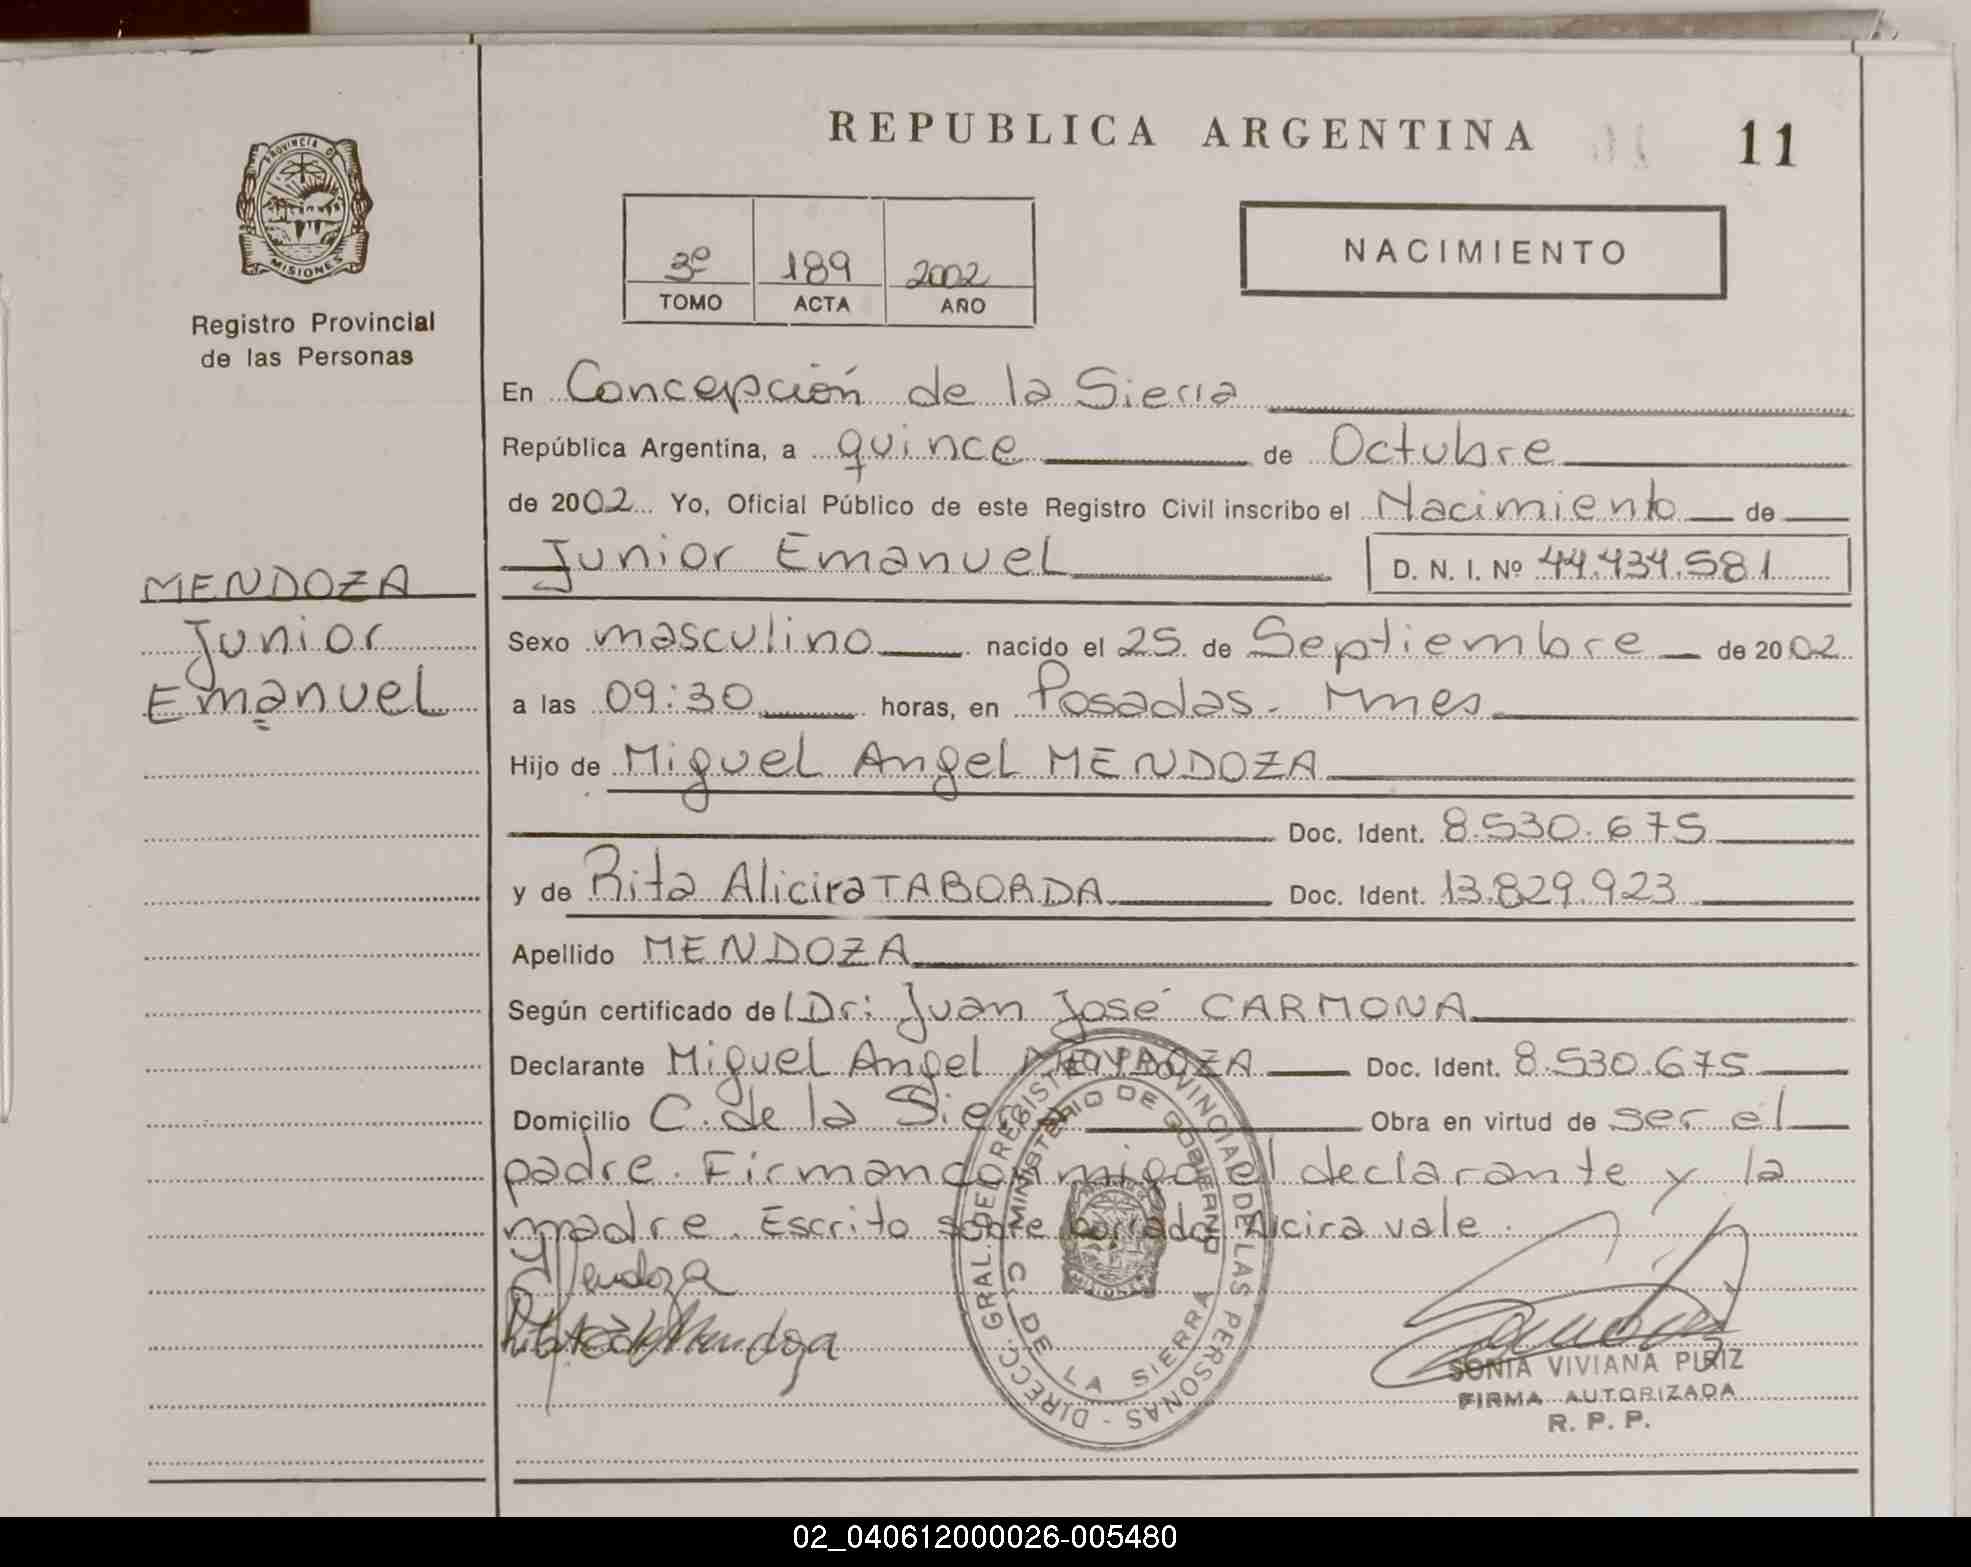 REPUBLICA ARGENTINA 11
PROVINCIA DE
MISIONES
Registro Provincial
de las Personas
3º 189 2002
TOMO ACTA AÑO
NACIMIENTO
En Concepción de la Sierra
República Argentina, a quince de Octubre
de 2002 Yo, Oficial Público de este Registro Civil inscribo el Nacimiento de
Junior Emanuel D. N. I. Nº 44.434.581
MENDOZA
Junior
Emanuel
Sexo masculino nacido el 25 de Septiembre de 2002
a las 09:30 horas, en Posadas - Mnes
Hijo de Miguel Angel MENDOZA
Doc. Ident. 8.530.675
y de Rita Alicira TABORDA Doc. Ident. 13.829.923
Apellido MENDOZA
Según certificado de l Dr: Juan José CARMONA
Declarante Miguel Angel MENDOZA Doc. Ident. 8.530.675
Domicilio C. de la Sierra Obra en virtud de ser el
padre. Firman conmigo el declarante y la
madre. Escrito sobre borrado: Alicira vale.
Mendoza
Mendoza
DIRECC. GRAL. DEL REGISTRO PROVINCIAL DE LAS PERSONAS -
MINISTERIO DE GOBIERNO
C. DE LA SIERRA
SONIA VIVIANA PIRIZ
FIRMA AUTORIZADA
R. P. P.
02_040612000026-005480